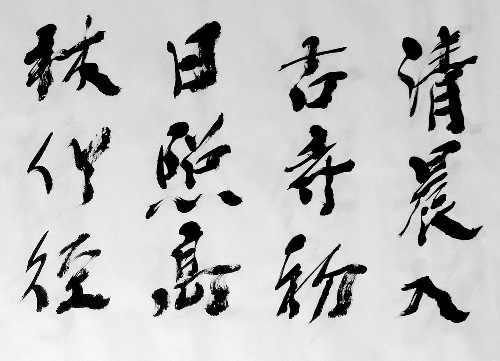 清晨入
古寺初
日照高
林竹徑